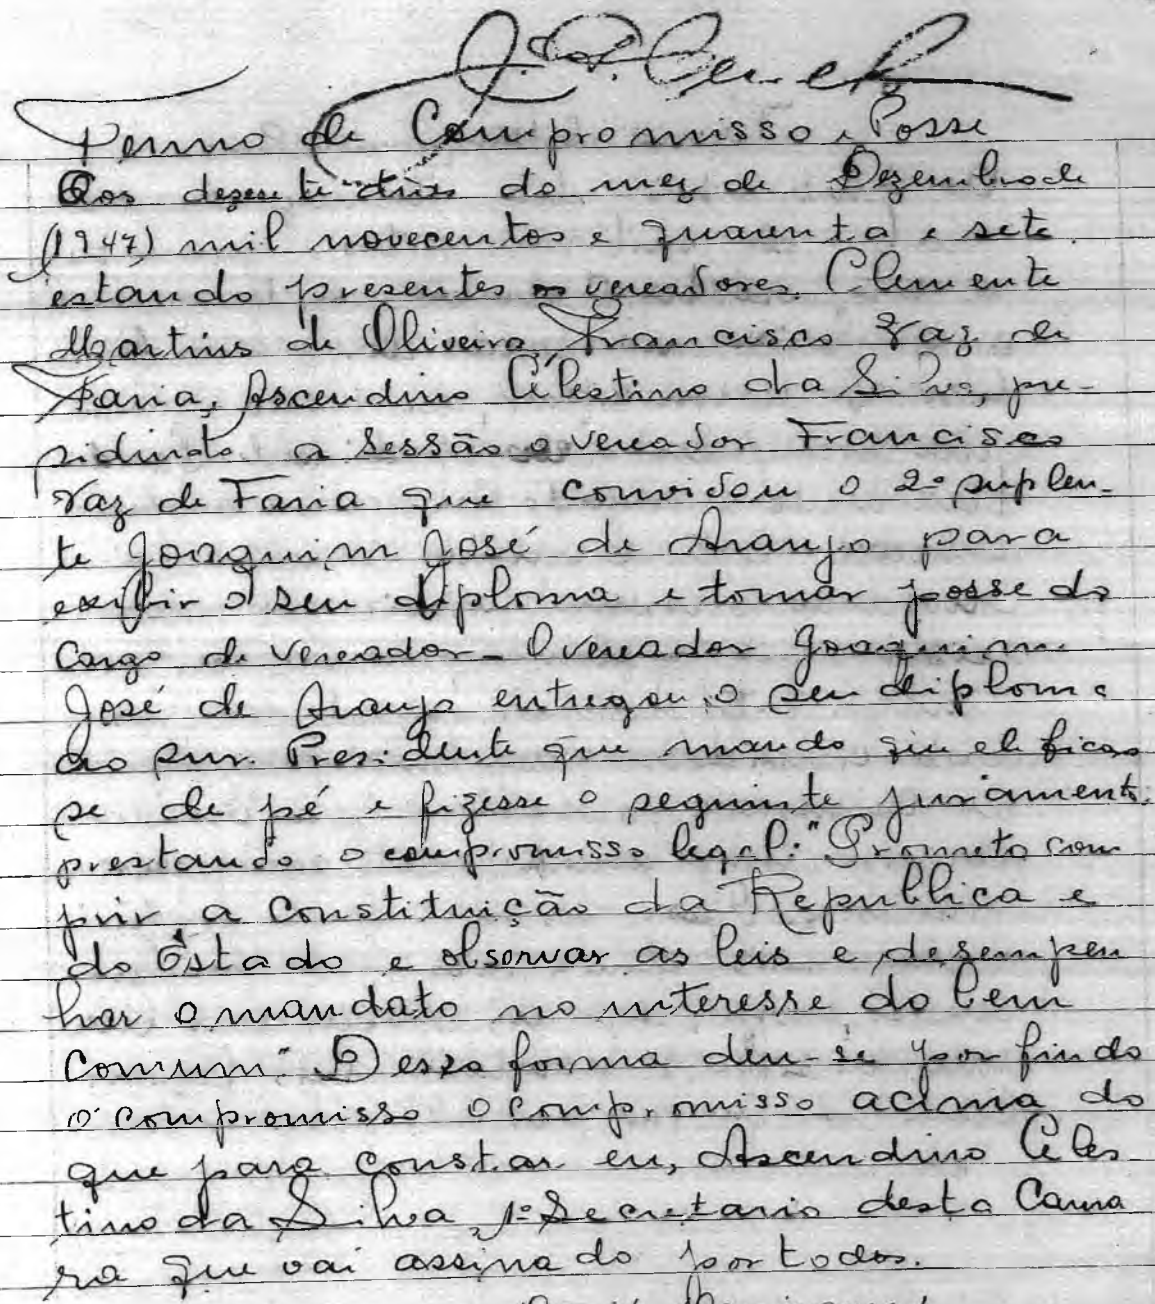 Termo de Compromisso e Posse
Aos dezesete dias do mez de Dezembro de
(1947) mil novecentos e quarenta e sete
estando presentes os vereadores. Clemente
Martins de Oliveira, Francisco Vaz de
Faria, Ascendino Célestino da Silva, pre-
sidindo a Sessão o vereador Francisco
Vaz de Faria que convidou o 2º suplen-
te Joaquim José de Araujo para
exibir o seu diploma e tomar posse do
Cargo de Vereador - O vereador Joaquim
José de Araujo entregou o seu diploma
ao snr. Presidente que mando que ele ficas
se de pé e fizesse o seguinte juramento
prestando o compromisso legal: "Prometo com
prir a Constituição da Republica e
do Estado e observar as leis e desempen
har o mandato no interesse do bem
Comum". Dessa forma deu-se por findo
o compromisso o compromisso acima do
que para constar eu, Ascendino Celes
tino da Silva, 1º Secretario desta Cama
ra que vai assinado por todos.